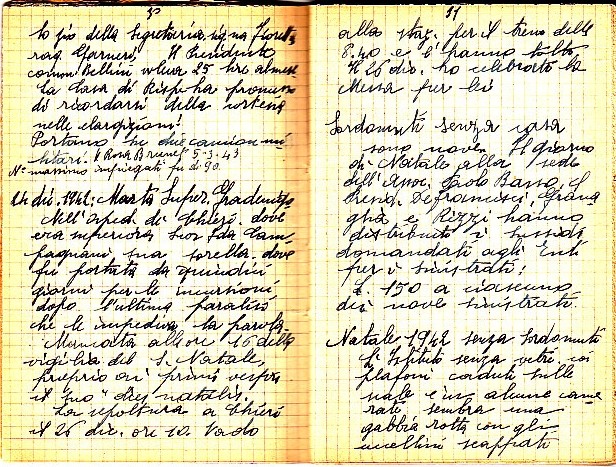 30
to più della Segretaria, sig.na
rag. Guarneri. Il Presidente
comm. Bellini voleva 25 lire almeno
La Casa di Rispa ha promesso
di ricordarsi della
nelle elargizioni!
Portano via due camion mi
litari. V. Rosa Brunetti 5-3-43
N° massimo impiegati fu di 90.
24 dic. 1942: Morta Super. Gradenigo
Nell'Osped. di Chieri, dove
era superiora Suor Ida Cam
pagnani sua sorella, dove
fu portata da quindici
giorni per le incursioni
dopo l'ultima paralisi
che le impediva la parola.
Mancata alle ore 16 della
vigilia del S. Natale,
proprio ai primi vespri
il suo "dies natalis.
La sepoltura a Chieri
il 26 dic. ore 10. Vado
31
alla staz. per il treno delle
8.40 e l'hanno tolto.
Il 26 dic. ho celebrato la
Messa per lei
Sordomuti senza casa
sono nove. Il giorno
di Natale alla sede
dell'Assoc. Paolo Basso, il
Presid. Defrancisci,
e Rizzi hanno
distribuito i sussidi
domandati agli Enti
per i sinistrati:
L. 150 a ciascuno
dei nove sinistrati.
Natale 1942 senza sordomuti
L'Istituto senza vetri, coi
plafoni caduti sulle
sale e in alcune came
rate, sembra una
gabbia rotta con gli
uccellini scappati